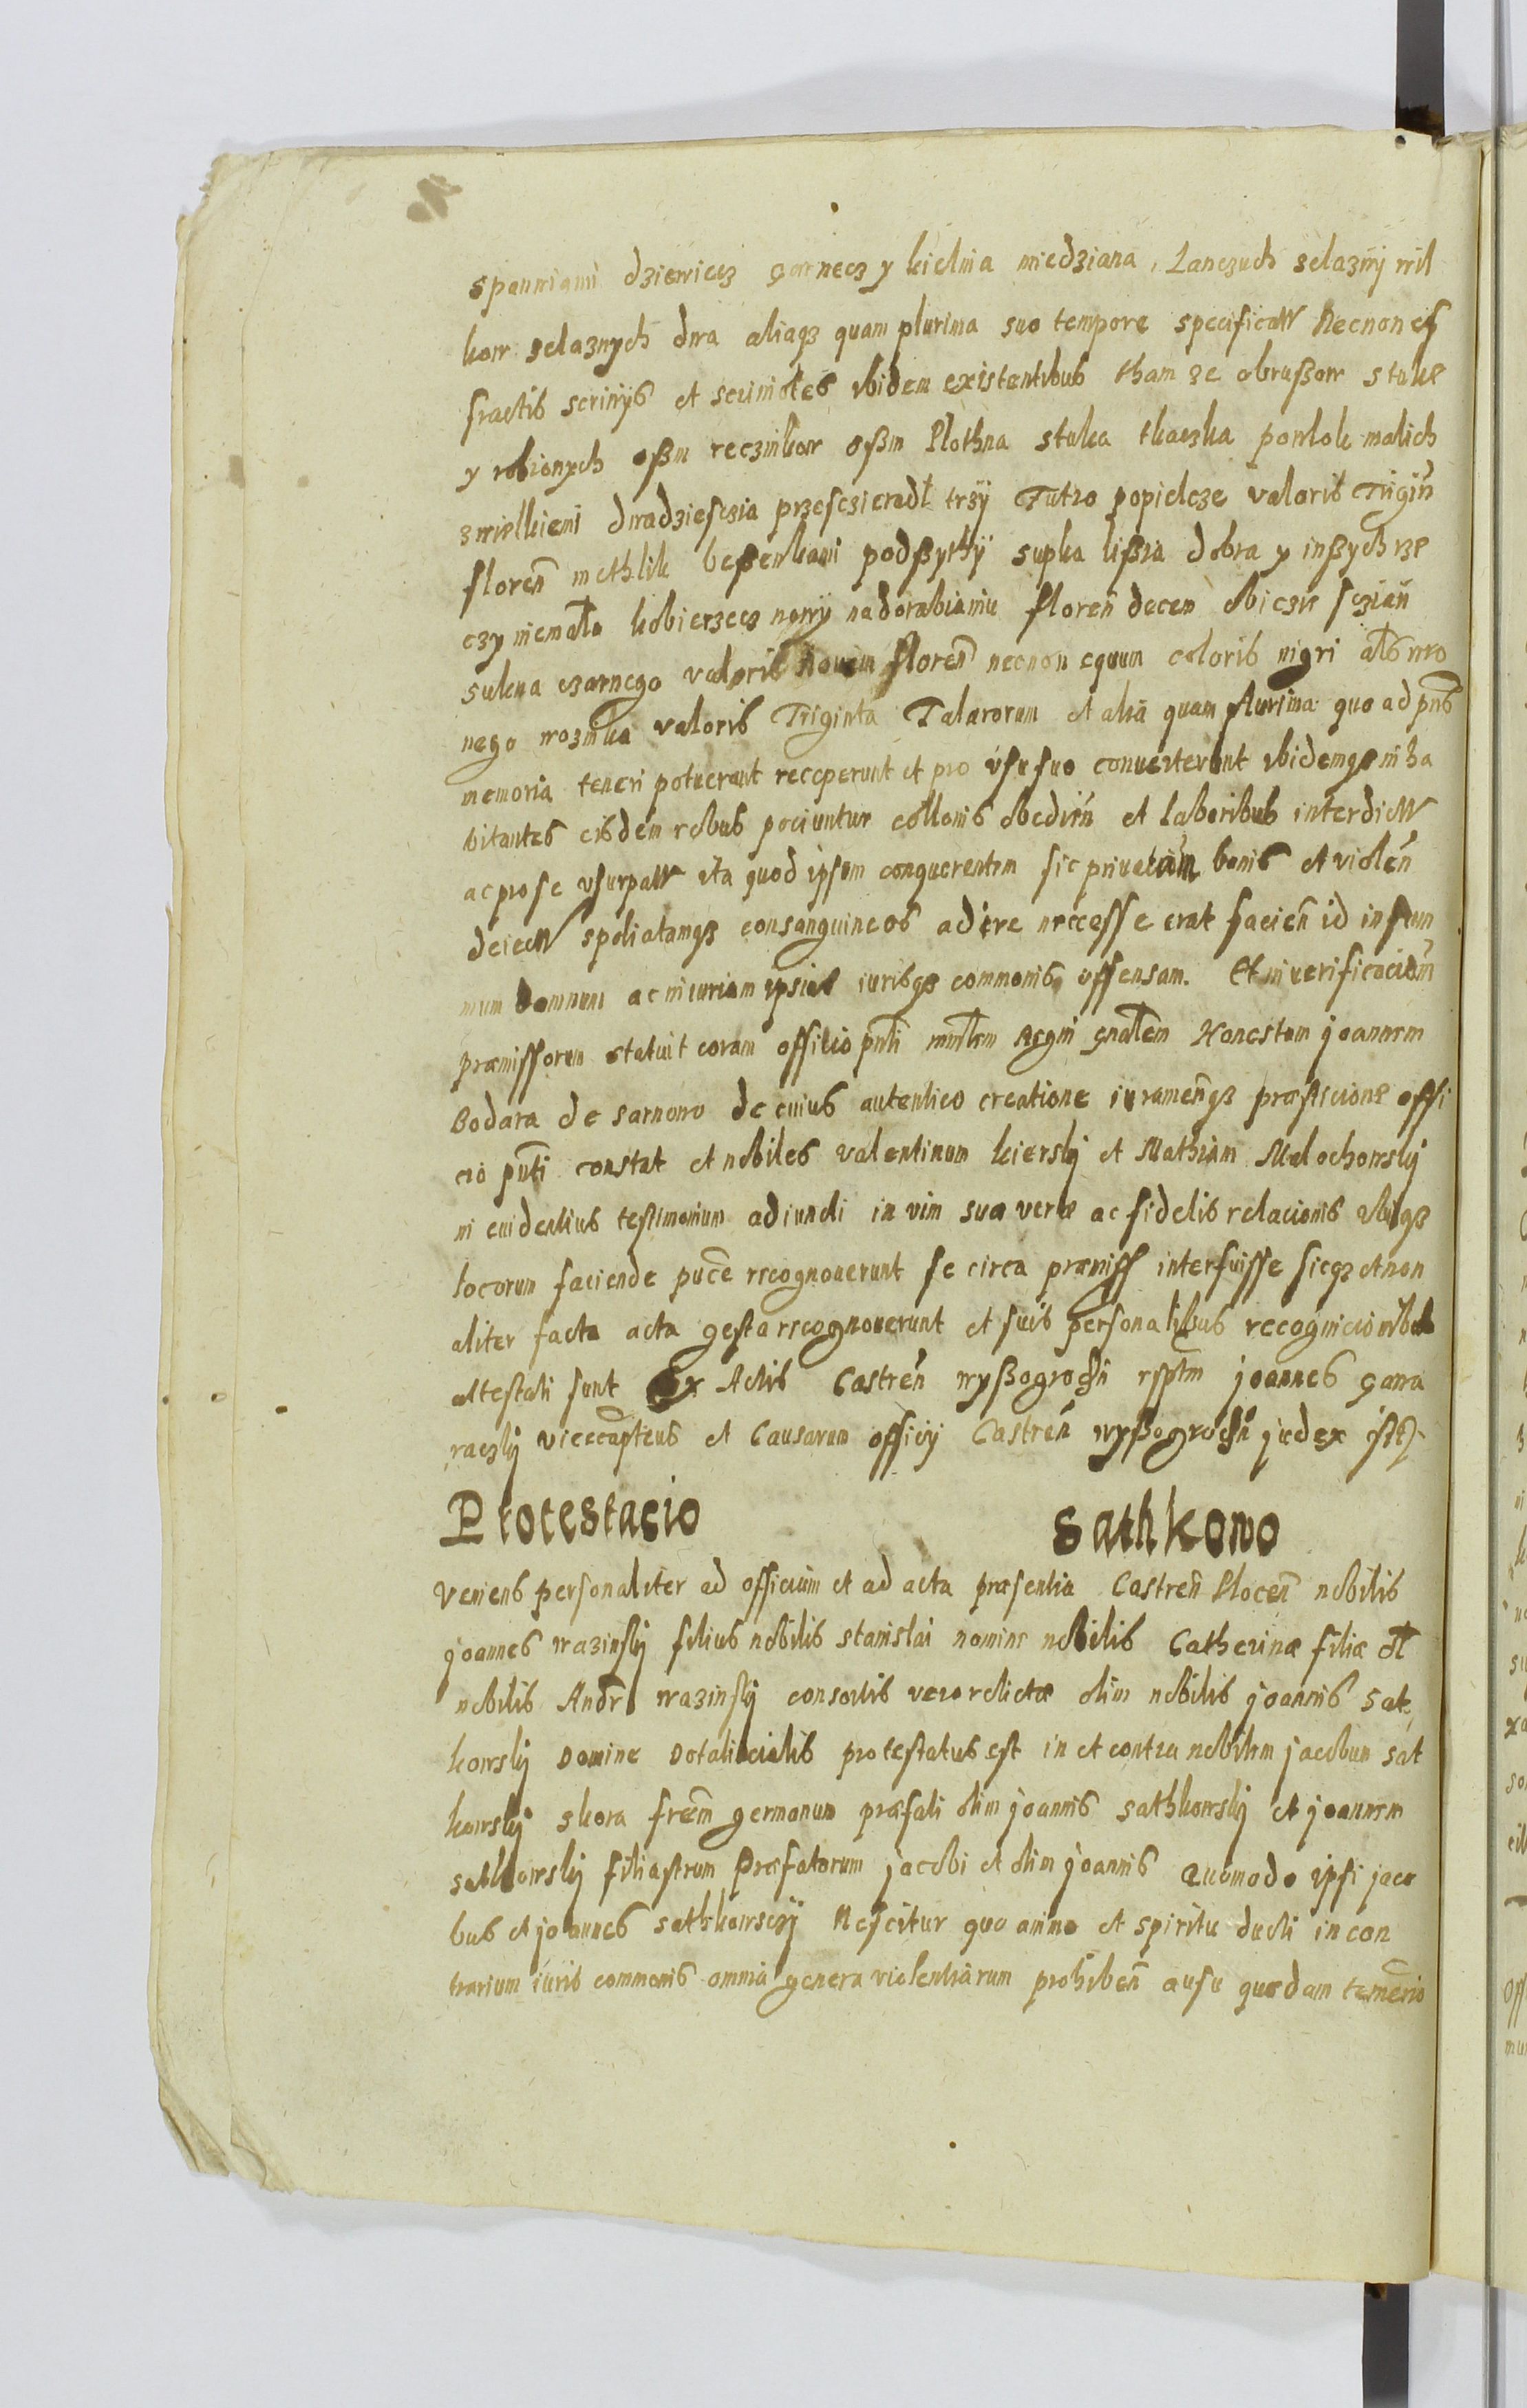 spanniami dziewicz garnecz y kielnia miedziana, Lanczuch zelazny wil
kow zelaznych dwa aliaqз quam plurima suo tempore specificatt Necnon ef
fractis scrinijs et ibidem existentibus tham ze obrußow stuke
y robionych oßm recznikow oßm Plothna stuka tkaczka powlok malich
z wielkiemi dwadziesczia przesczieradl trzÿ Futro popielcze valoris Trigiñ
floreñ methlik beßenkami podßythÿ supka lißia dobra y inßych rze
czy niemało kobierzecz nowy nadorabianiu floreñ decem obiczie scziañ
sukna czarnego valoris Novem floreñ necnon equum coloris nigri als wro
nego woznika valoris Triginta Talarorum et alia quam plurima quo ad pñs
memoria teneri potuerant receperunt et pro usu suo converterunt ibidemqз inha
bitantes eisdem rebus pociuntur collonis obedieñ et laboribus interdictt
ac pro se usurpatt ita quod ipsam conquerentem sic privatam bonis et violeñ
deiectt spoliatamqз consanguineos adire necesse erat facieñ id in sum
mum damnum ac iniuriam ipsius iurisqз communis offensam. Et in verificacioñ
præmissorum statuit coram officio pñti miñlem Regni gñalem Honestum joannem
Bodara de sarnowo de cuius autentico creatione iurameñqз præsticione offi
cio pñti constat et nobiles valentinum kierskj et Mathiam Malochowskj
in evidentius testimonium adiuncti in vim suæ veræ ac fidelis relacionis ubiqз
locorum faciende puce recognoverunt se circa præmiss interfuisse sicqз et non
aliter facta acta gesta recognoverunt et suis personalibus recognicionibus
attestati sunt Ex Actis Castreñ wyßogrodñ rsptm joannes gawa
raczkj vicecapteus et Causarum officij Castreñ wyßogrodñ judex sst
Protestacio Sathkowo
Veniens personaliter ad officium et ad acta præsentia Castreñ Ploceñ nobilis
joannes wazinskj filius nobilis stanislai nomine nobilis Catherinæ filiæ ol
nobilis Andr wazinskj consortis vero relictæ olim nobilis joannis sat
kowskj Domine Dotalicialis protestatus est in et contra nobilem jacobum sat
kowskj skora frem germanum præfati olim joannis sathkowskj et joannem
sathkowskj filiastrum Præfatorum jacobi et olim joannis Quomodo ipsi jaco
bus et joannes sathkowsczÿ Nescitur quo animo et spiritu ducti in con
trarium iuris communis omnia genera violentiarum prohibeñ ausu quodam temerio